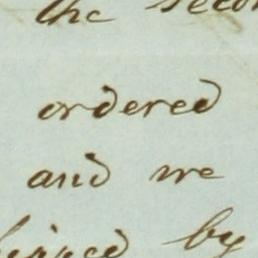 the
ordered
and we
by